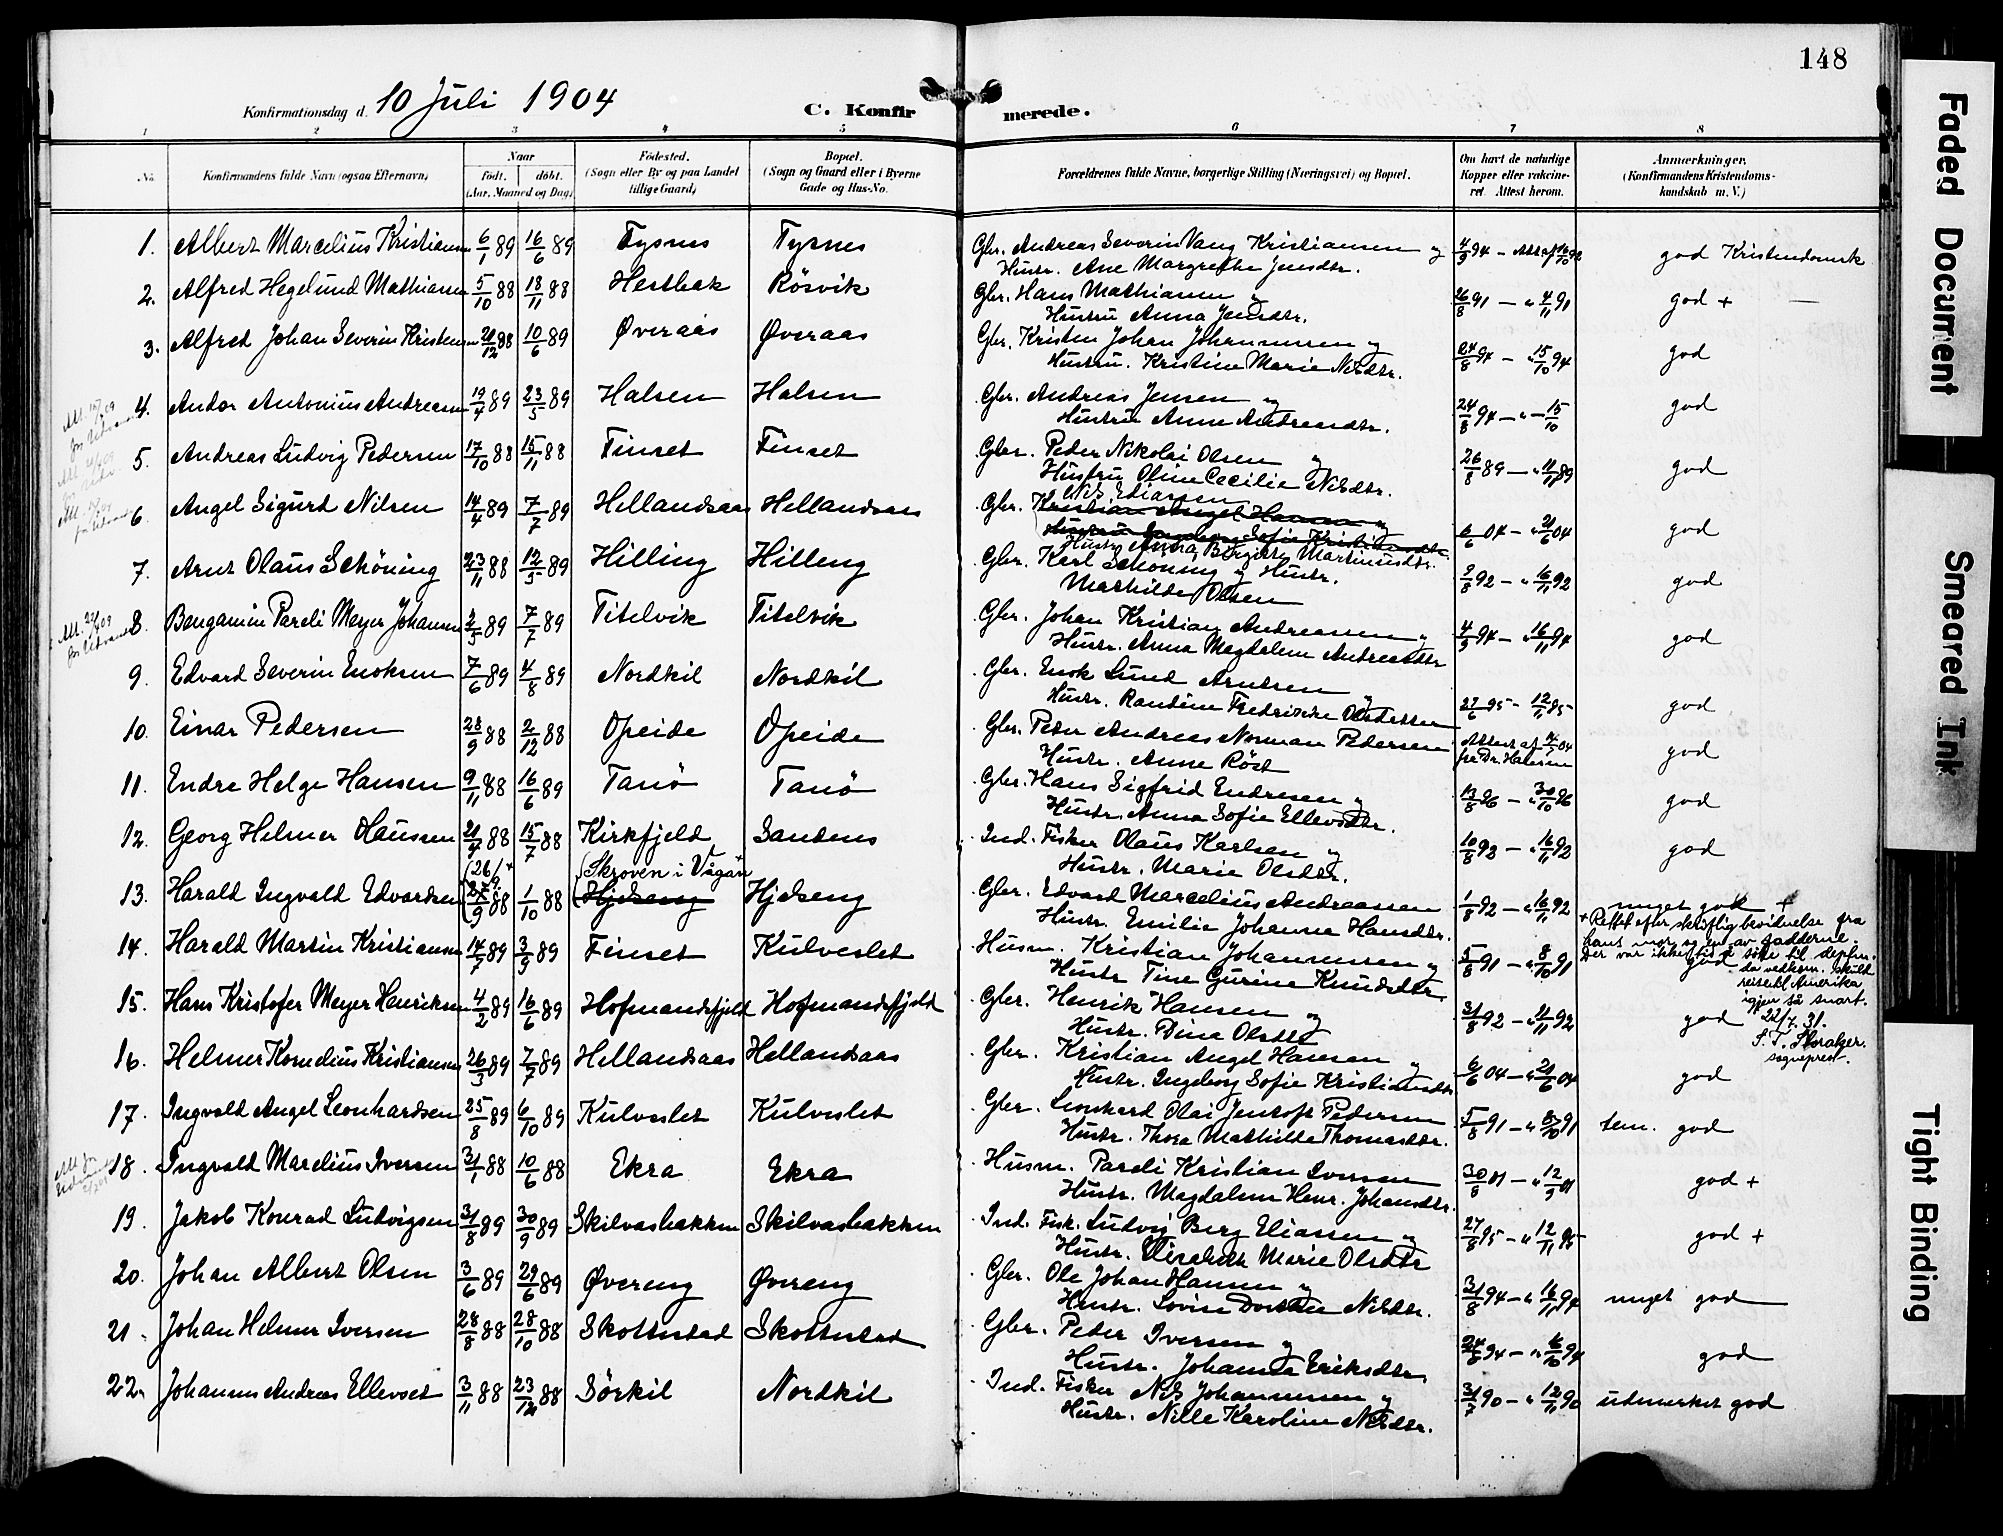 148
Konfirmationsdag d. 10 Juli 1904
C. Konfirmerede.
1 2 3 4 5 6 7 8
No.
Konfirmandens fulde Navn (ogsaa Efternavn)
Naar
født. døbt.
(Aar, Maaned og Dag)
Fødested.
(Sogn eller By og paa Landet
tillige Gaard)
Bopæl.
(Sogn og Gaard eller i Byerne
Gade og Hus-No.
Forældrenes fulde Navne, borgerlige Stilling (Næringsvei) og Bopæl.
Om havt de naturlige
Kopper eller vakcine-
ret. Attest herom.
Anmærkninger.
(Konfirmandens Kristendoms-
kundskab m. V.)
1. Albert Marcelius Kristiansen 6/1 89 16/6 89 Tysnes Tysnes Gbr. Andreas Severin Vang Kristiansen og 4/9 94 - Att af 16/10 92 god Kristendomsk
Hustr. Ane Margrethe Jensdtr.
2. Alfred Hegelund Mathiasen 5/10 88 18/11 88 Hestbak Rösvik Gbr. Hans Mathiasen og 26/8 91 - " 4/11 91 god +
Hustru Anna Jensdtr.
3. Alfred Johan Severin Kristensen 21/12 88 10/6 89 Øveraas Øveraas Gbr. Kristen Johan Johannesen og 24/8 94 - " 15/10 94 god
Hustru. Kristine Marie Nilsdtr.
4. Andor Antonius Andreasen 19/4 89 23/5 89 Halsen Halsen Gbr. Andreas Jensen og 24/8 94 - " - 15/10 god
Hustru Anne Andreasdtr.
5. Andreas Ludvig Pedersen 17/10 88 15/11 88 Finset Finset Gbr. Peder Nikolai Olsen og 26/8 89 - " 11/11 89 god
Hustru Oline Cecilie Nilsdtr.
Nils Eliassen
6. Angel Sigurd Nilsen 14/4 89 7/7 89 Hellandsaas Hellandsaas Gbr. Kristian Angel Hansen og 6/6 04 - " 21/6 04 god
Hustru Ingeborg Sofie Kristiansdtr.
Hustr. Anna Bergitte Martinusdtr.
7. Arnt Olaus Schöning 23/11 88 12/5 89 Hilling Hilling Gbr. Karl Schöning og Hustr. 9/8 92 - " 16/11 92 god
Mathilde Olsen
8. Bengamin Pareli Meyer Johansen 2/5 89 7/7 89 Titelvik Titelvik Gbr. Johan Kristian Andreasen og 4/9 94 - " 16/11 94 god
Hustr. Anna Magdalena Andreasdtr
9. Edvard Severin Enoksen 7/6 89 4/8 89 Nordkil Nordkil Gbr. Enok Lund Arntsen og 27/6 95 - 12/11 95 god
Hustr. Randine Fredrikke Olsdatter
10. Einar Pedersen 28/9 88 2/12 88 Opeide Opeide Gbr. Peter Andreas Norman Pedersen Attest af 4/7 04 god
Hustr. Anne Röst fra Dr. Hansen
11. Endre Helge Hansen 9/11 88 16/6 89 Tanö Tanö Gbr. Hans Sigfrid Endresen og 13/8 96 - " 30/10 96 god
Hustr. Anna Sofie Ellevsdtr.
12. Georg Helmer Olaussen 21/4 88 15/7 88 Kirkfjeld Sandnes Ind. Fisker Olaus Karlsen og 10/8 92 - " 16/11 92 god
Hustr. Marie Olsdtr.
(26/9 + (Skroven i Vågan +
13. Harald Ingvald Edvardsen 27/9 88 1/10 88 Hjelseng Hjelseng Gbr. Edvard Marcelius Andreassen 1/8 92 - " 16/11 92 meget god +
Hustr. Emilie Johanna Hansdtr.
+ Rettet efter skriftlig bevidnelse fra
hans mor og en av fadderne.
Der var ikke tid å söke til depfm.
da vedkom. skuld
reise til Amerika
igjen så snart.
22/7. 31.
S. T. Storaker.
sogneprest.
14. Harald Martin Kristiansen 14/7 89 3/9 89 Finset Kulveslet Husm. Kristian Johannesen og 5/8 91 - " 8/10 91 god
Hustr Tine Gurine Knudsdtr
15. Hans Kristofer Meyer Henriksen 4/2 89 16/6 89 Hofmandsfjeld Hofmandsfjeld Gbr. Henrik Hansen og 31/8 92 - " 11/11 92 god
Hustr. Dina Olsdtr
16. Helmer Kornelius Kristiansen 26/3 89 7/7 89 Hellandsaas Hellandsaas Gbr. Kristian Angel Hansen og 6/6 04 - " 21/6 04 god
Hustr. Ingeborg Sofie Kristiansdtr
17. Ingvald Angel Leonhardsen 25/8 89 6/10 89 Kulveslet Kulveslet Gbr. Leonhard Olai Jentoft Pedersen 5/8 91 - " 8/10 91 tem. god
Hustr. Thora Mathilde Thomasdtr.
18. Ingvald Marelius Iversen 31/1 88 10/6 88 Ekra Ekra Husm. Pareli Kristian Iversen 30/8 01 - " 12/9 01 god +
Hustr. Magdalena Henr. Johansdtr.
19. Jakob Konrad Ludvigsen 31/8 89 30/9 89 Skilvasbakken Skilvasbakken Ind. Fisk. Ludvig Berg Eliassen og 27/8 95 - " 12/11 95 god +
Hustr. Marie Olsdtr
20. Johan Albert Olsen 3/6 89 29/6 89 Øvereng Øvreng Gbr. Ole Johan Hansen og 31/8 94 - " 16/11 94 meget god
Hustr. Lovise Dorthea Nilsdtr.
21. Johan Helmer Iversen 28/8 88 28/10 88 Skottnstad Skottnstad Gbr. Peder Iversen og 24/8 94 - " 6/10 94 god
Hustr. Johanna Eriksdtr.
22. Johannes Andreas Ellevset 3/11 88 23/12 88 Sörkil Nordkil Ind. Fisker Nils Johannesen og 31/7 90 - " 12/11 90 udmerket god
Hustr. Nille Karoline Nilsdtr.
Faded Document
Smeared Ink
Tight Binding